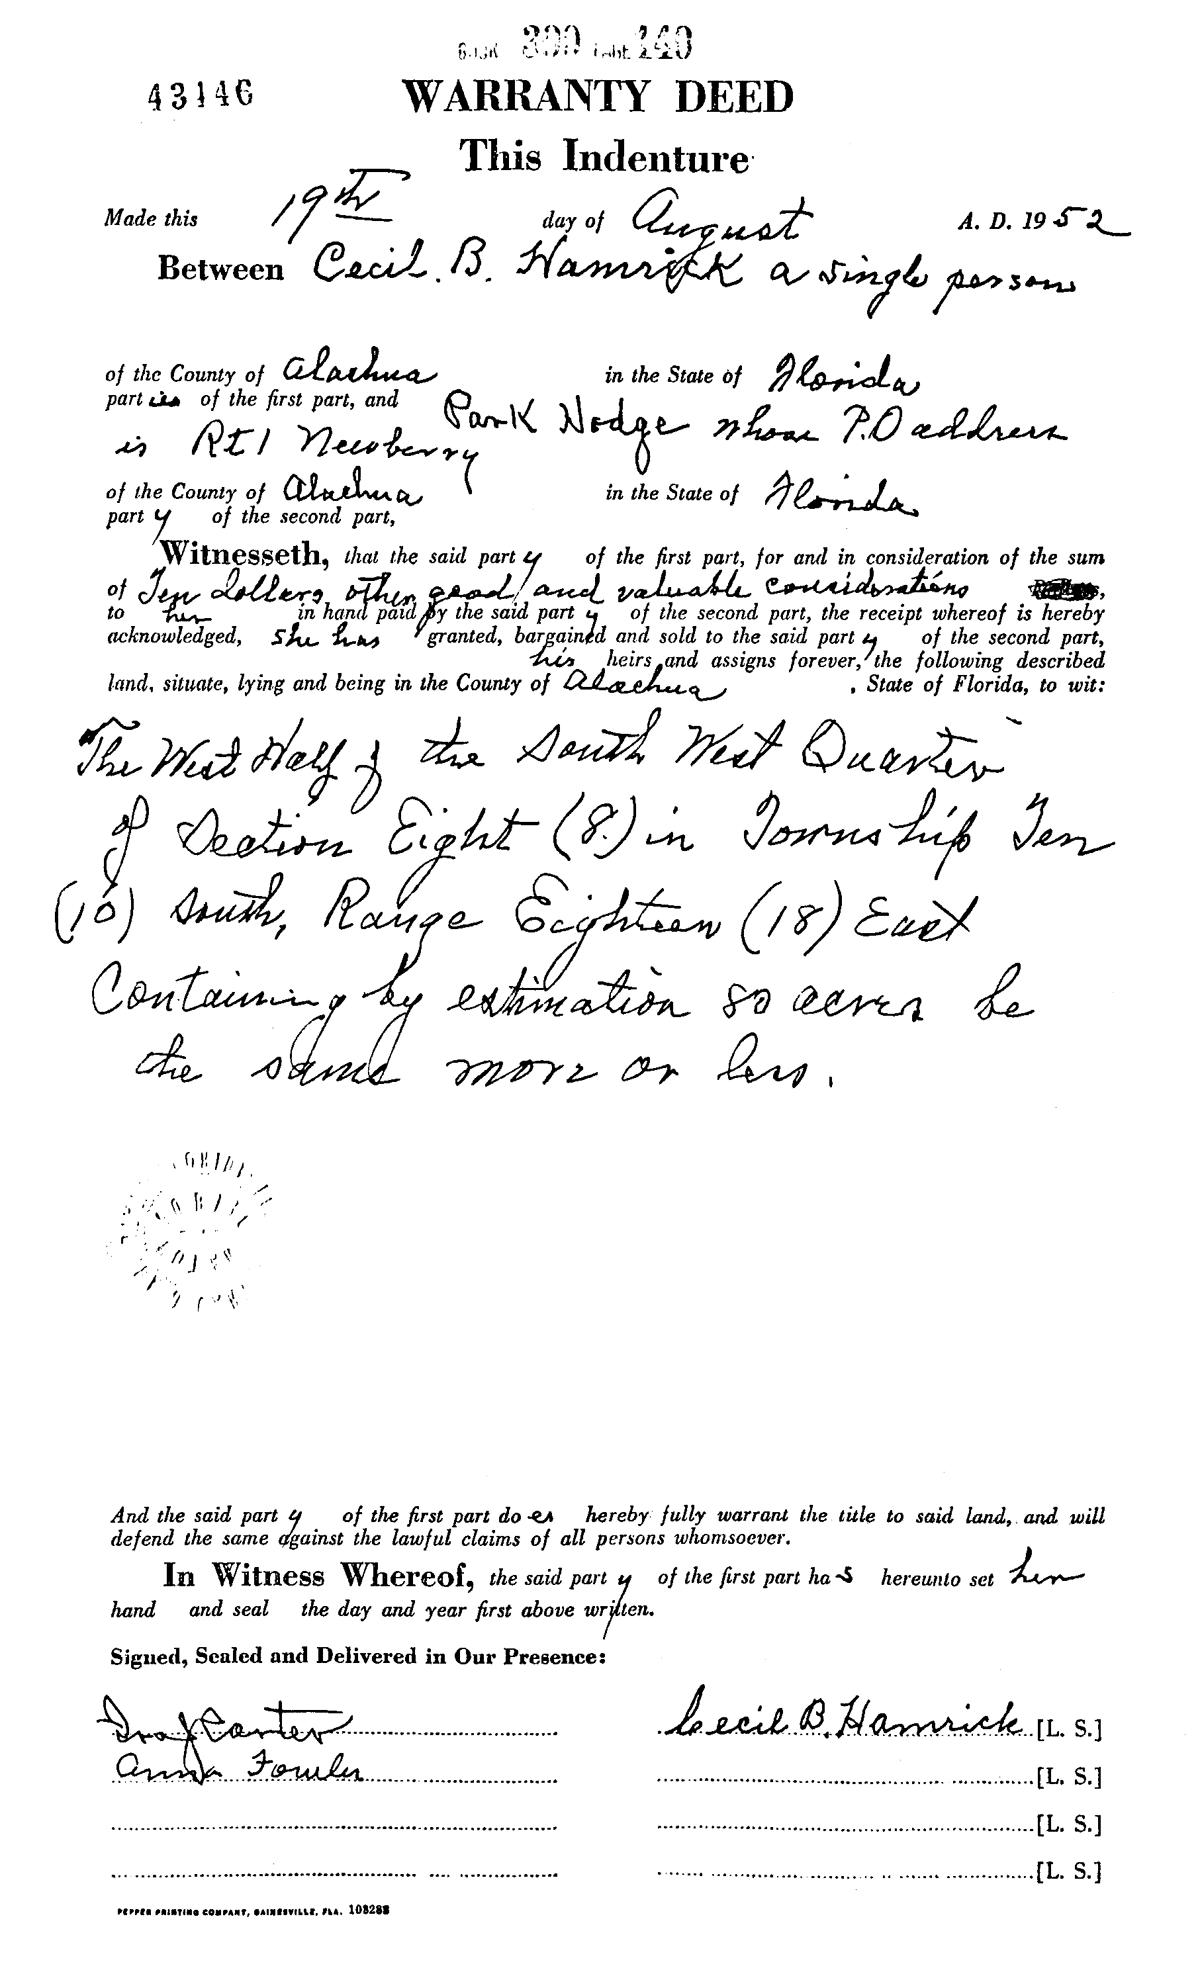 BOOK 390 PAGE 140
43146
WARRANTY DEED
This Indenture
Made this 19th day of August A. D. 1952
Between Cecil. B. Hamrick a single person
of the County of Alachua in the State of Florida
part ies of the first part, and Park Hodge whose P.O address
is Rt 1 Newberry
of the County of Alachua in the State of Florida
part y of the second part,
Witnesseth, that the said part y of the first part, for and in consideration of the sum
of Ten dollars other good and valuable considerations ,
to her in hand paid by the said part y of the second part, the receipt whereof is hereby
acknowledged, she has granted, bargained and sold to the said part y of the second part,
his heirs and assigns forever, the following described
land, situate, lying and being in the County of Alachua , State of Florida, to wit:
The West Half of the South West Quarter
of Section Eight (8.) in Township Ten
(10) South, Range Eighteen (18) East
Containing by estimation 80 acres be
the same more or less.
And the said part y of the first part do es hereby fully warrant the title to said land, and will
defend the same against the lawful claims of all persons whomsoever.
In Witness Whereof, the said part y of the first part ha s hereunto set her
hand and seal the day and year first above written.
Signed, Sealed and Delivered in Our Presence:
Ira J Carter Cecil B. Hamrick [L. S.]
Anna Fowler [L. S.]
[L. S.]
[L. S.]
PEPPER PRINTING COMPANY, GAINESVILLE, FLA. 103288